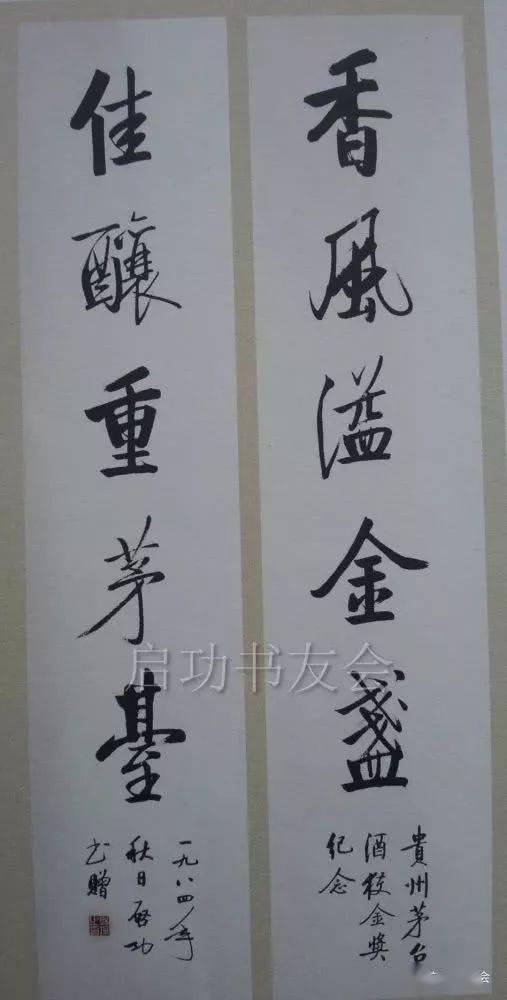 香風溢金盞
貴州茅台
酒獲金獎
紀念
佳釀重茅臺
一九八四年
秋日啟功
書贈
启功书友会
会